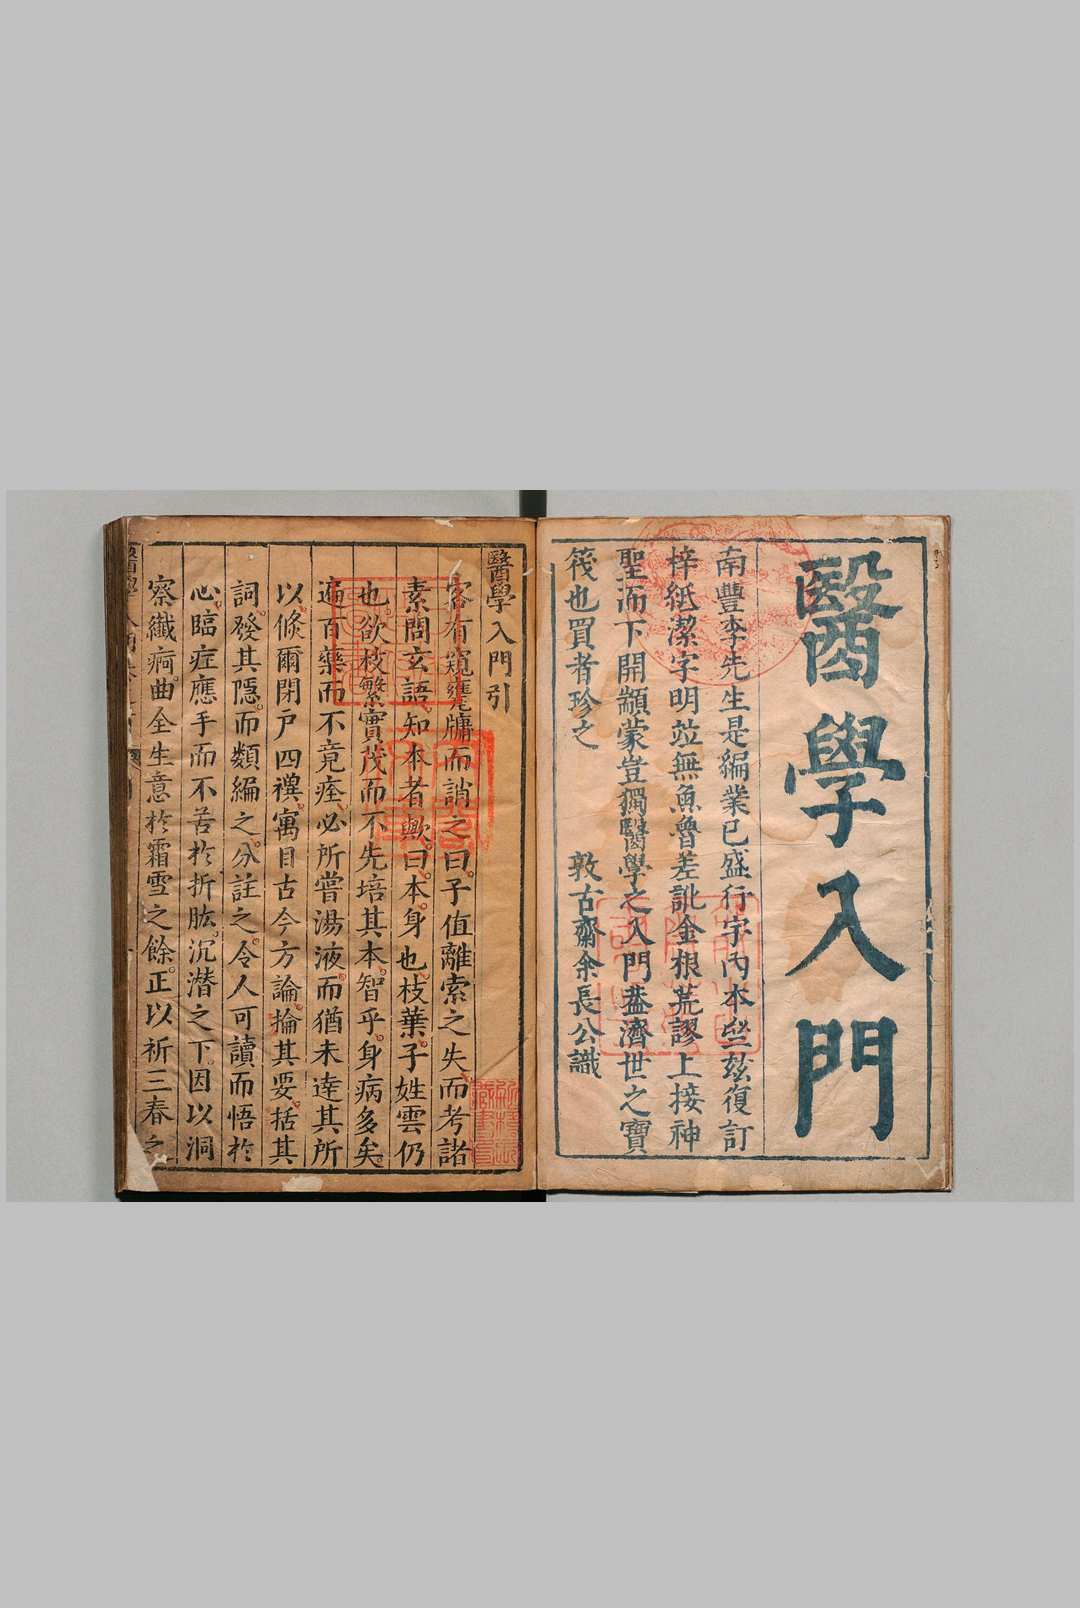 醫學入門
南豐李先生是編業已盛行宇內本堂茲復訂
梓紙潔字明並無魚魯差訛金根荒謬上接神
聖而下開顓蒙豈獨醫學之入門葢濟世之寶
筏也買者珍之
敦古齋余長公識
醫學入門引
客有窺甕牖而誚之曰子值離索之失而考諸
素問玄語知本者歟曰本身也枝葉子姓雲仍
也欲枝繁實茂而不先培其本智乎身病多矣
遍百藥而不竟痊必所嘗湯液而猶未達其所
以倐爾閉戸四禩寓目古今方論掄其要括其
詞發其隱而類編之分註之令人可讀而悟於
心臨症應手而不苦於折肱沉潛之下因以洞
察纖痾曲全生意於霜雪之餘正以祈三春之